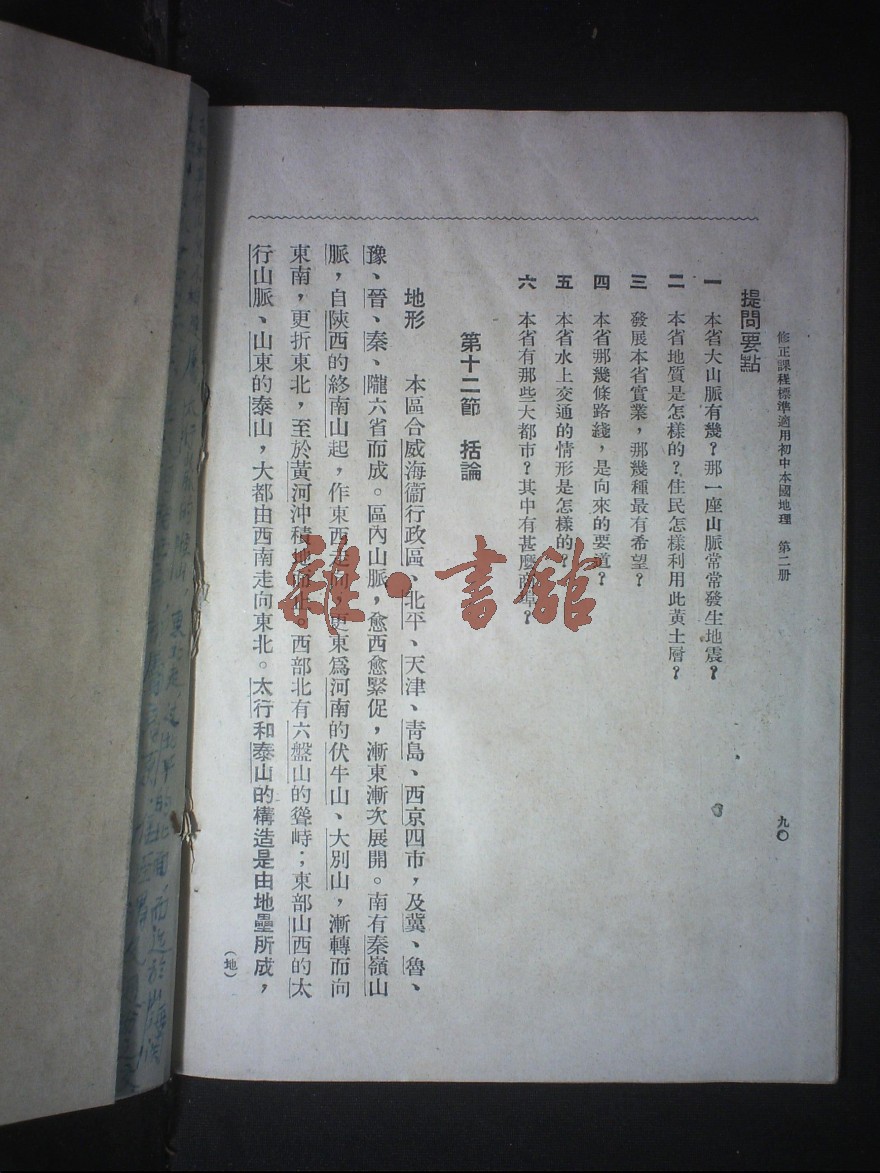 修正課程標準適用初中本國地理　第二册
九〇
提問要點
一　本省大山脈有幾？那一座山脈常常發生地震？
二　本省地質是怎樣的？住民怎樣利用此黃土層？
三　發展本省實業，那幾種最有希望？
四　本省那幾條路綫，是向來的要道？
五　本省水上交通的情形是怎樣的？
六　本省有那些大都市？其中有甚麼商埠？
第十二節　括論
地形　本區合威海衞行政區、北平、天津、青島、西京四市，及冀、魯、
豫、晉、秦、隴六省而成。區內山脈，愈西愈緊促，漸東漸次展開。南有秦嶺山
脈，自陝西的終南山起，作東西走向，更東爲河南的伏牛山、大別山，漸轉而向
東南，更折東北，至於黃河沖積地而止。西部北有六盤山的聳峙；東部山西的太
行山脈、山東的泰山，大都由西南走向東北。太行和泰山的構造是由地壘所成，
（地）
雜·書館